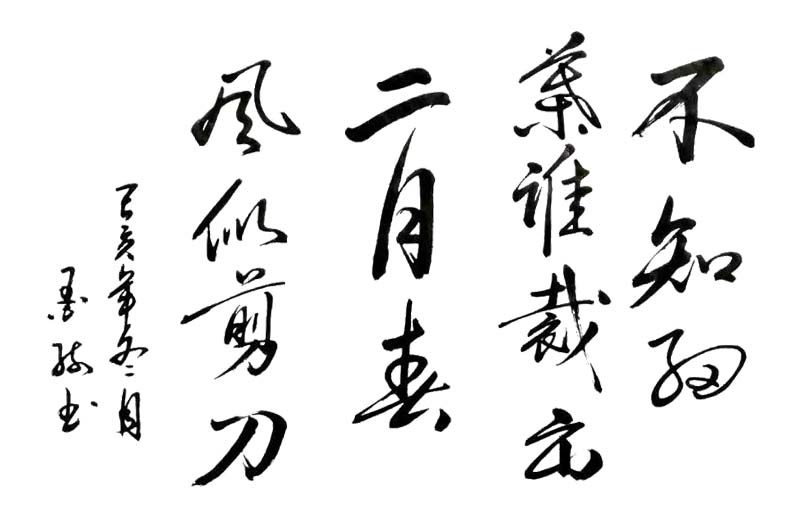 不知细
叶谁裁出
二月春
风似剪刀
己亥年冬二月
墨海书